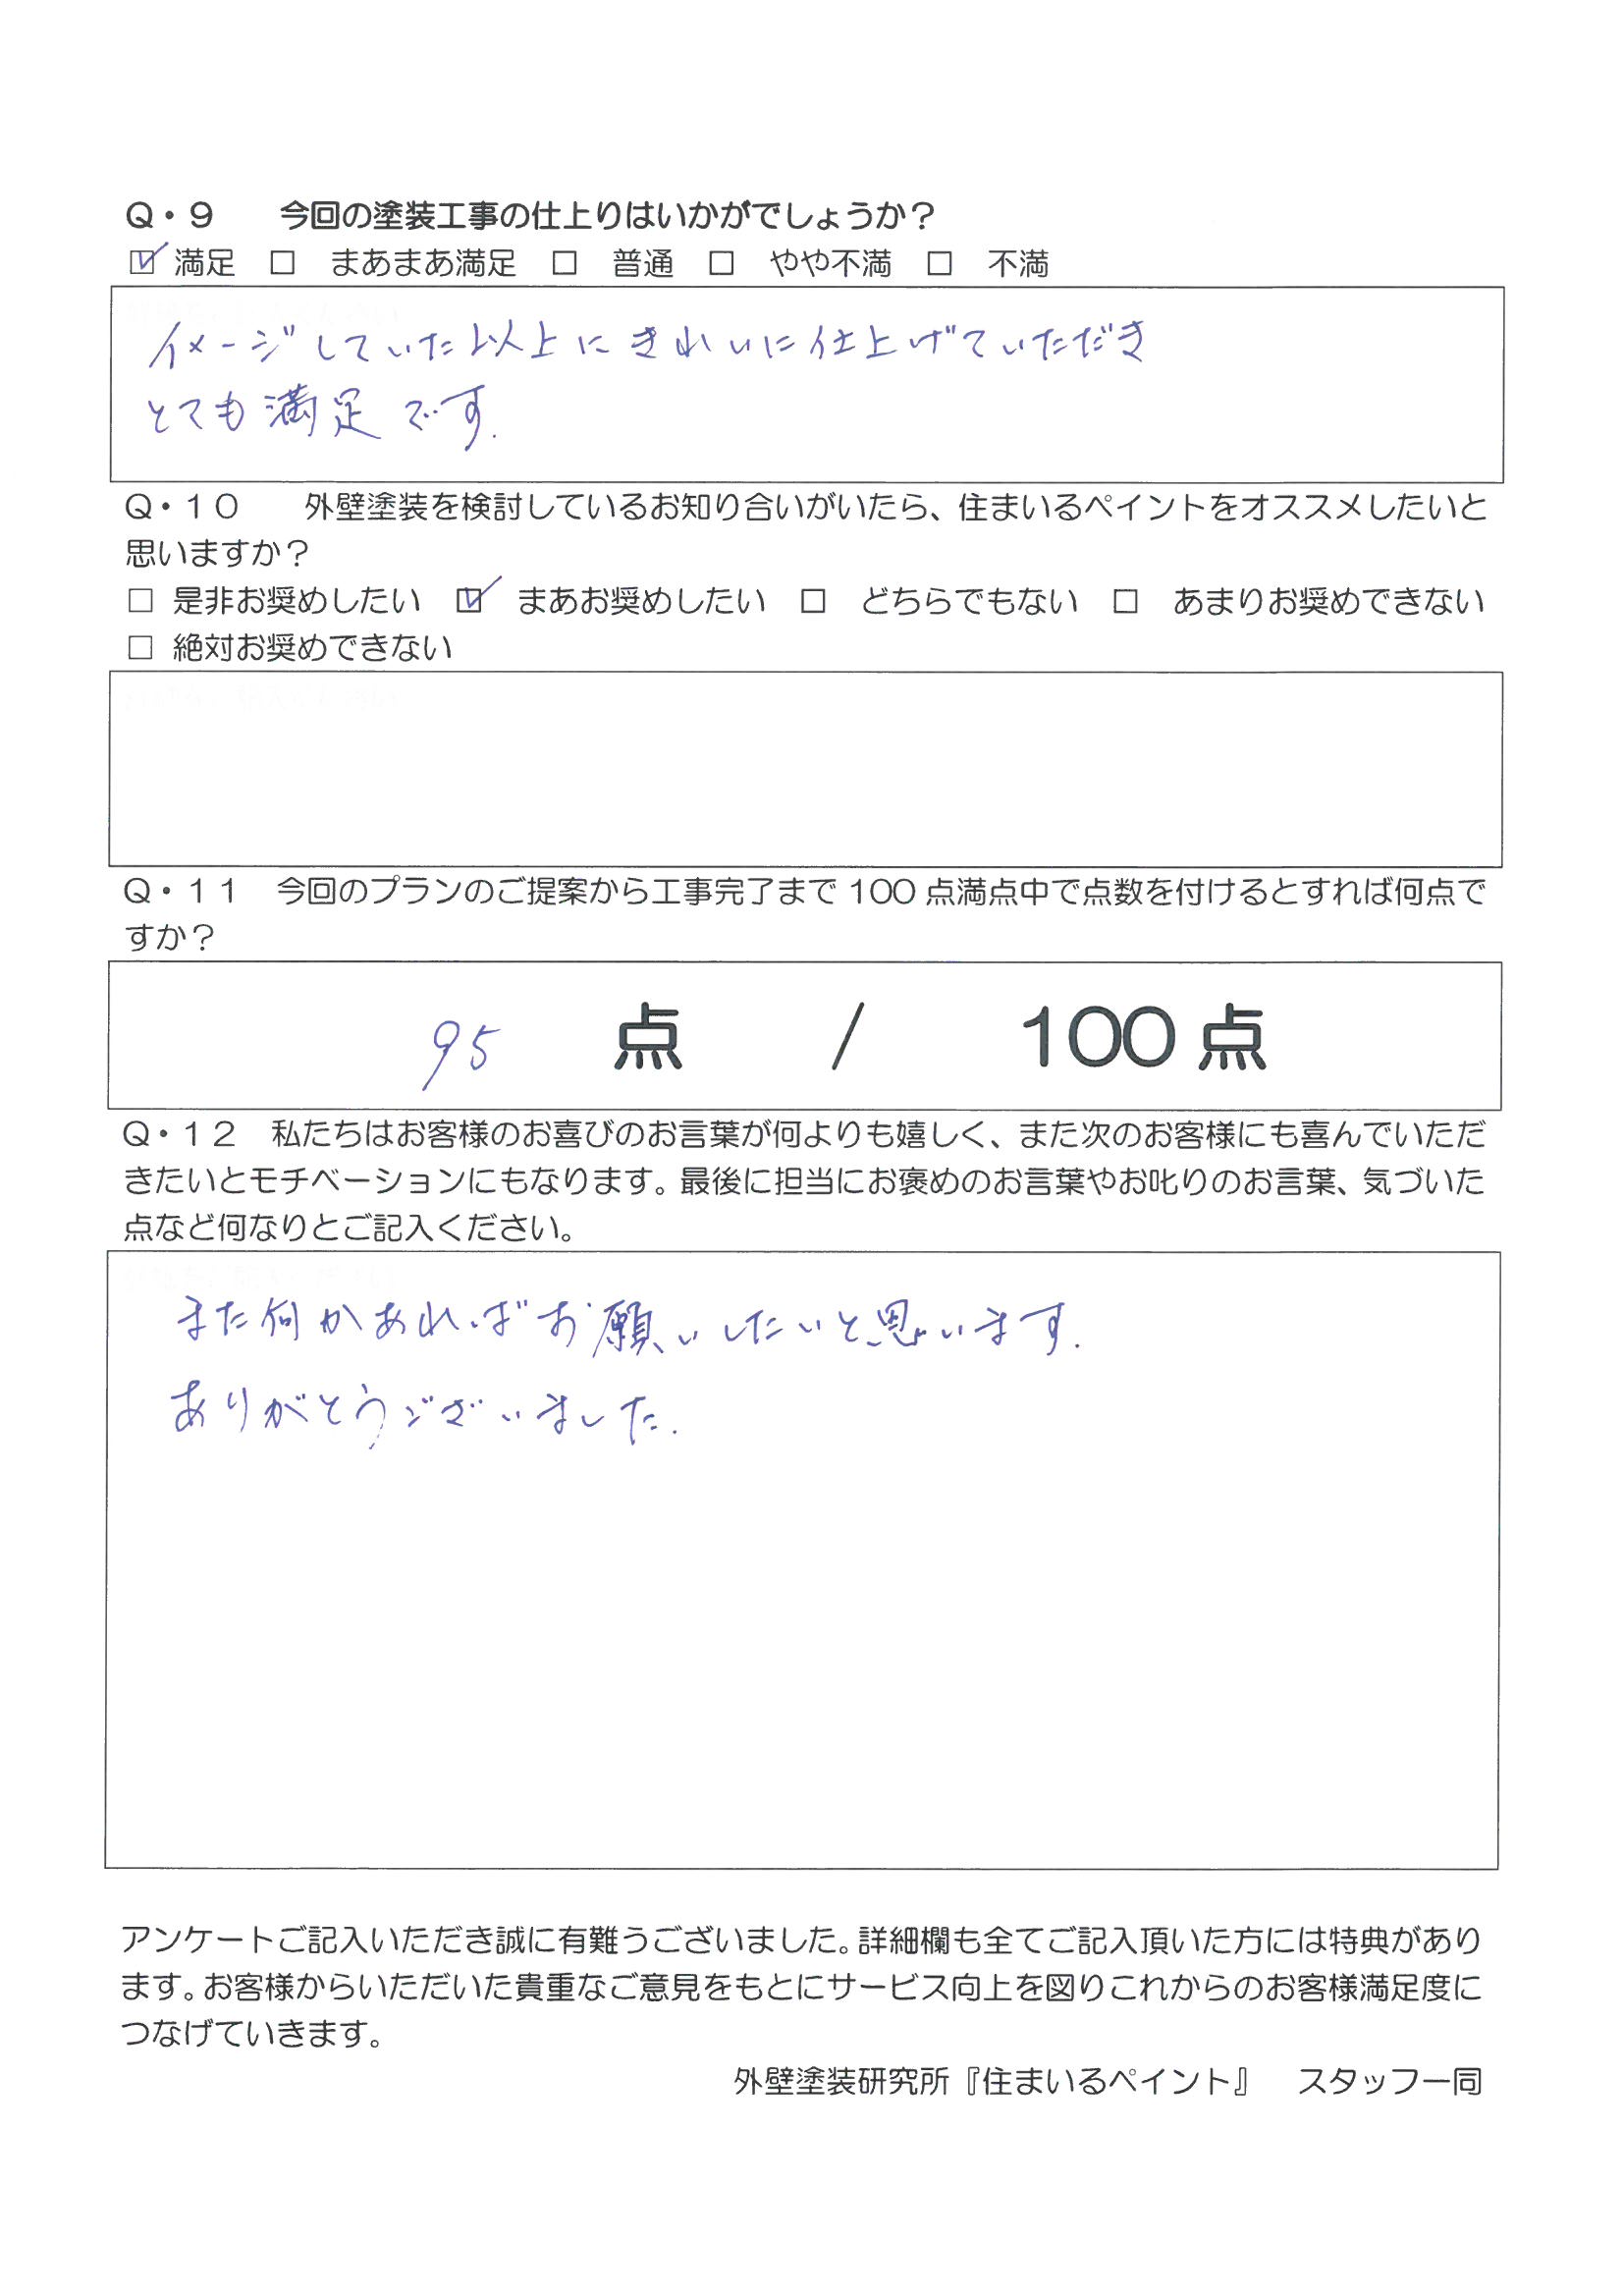 Q・9　今回の塗装工事の仕上りはいかがでしょうか？
☑ 満足 □ まあまあ満足 □ 普通 □ やや不満 □ 不満
イメージしていた以上にきれいに仕上げていただき
とても満足です.
Q・10　外壁塗装を検討しているお知り合いがいたら、住まいるペイントをオススメしたいと
思いますか？
□ 是非お奨めしたい ☑ まあお奨めしたい □ どちらでもない □ あまりお奨めできない
□ 絶対お奨めできない
Q・11　今回のプランのご提案から工事完了まで100点満点中で点数を付けるとすれば何点で
すか？
95 点 / 100点
Q・12　私たちはお客様のお喜びのお言葉が何よりも嬉しく、また次のお客様にも喜んでいただ
きたいとモチベーションにもなります。最後に担当にお褒めのお言葉やお叱りのお言葉、気づいた
点など何なりとご記入ください。
また何かあればお願いしたいと思います.
ありがとうございました.
アンケートご記入いただき誠に有難うございました。詳細欄も全てご記入頂いた方には特典があり
ます。お客様からいただいた貴重なご意見をもとにサービス向上を図りこれからのお客様満足度に
つなげていきます。
外壁塗装研究所『住まいるペイント』　スタッフ一同